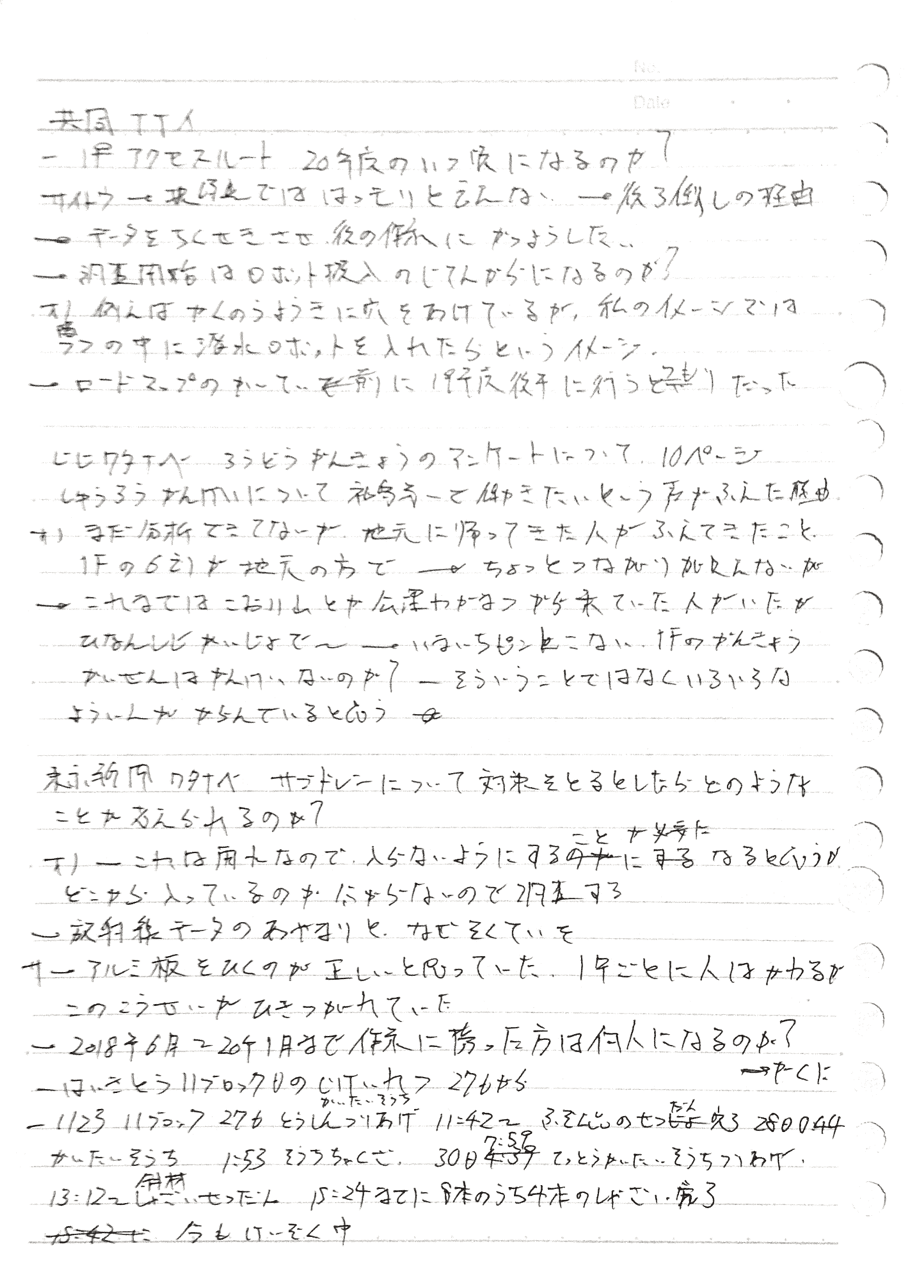 No.
Date
共同 TTイ
ー 1号 アクセスルート 20年度のいつ頃になるのか?
サイトウ → 現段階では はっきりと言えない → 後ろ倒しの理由
→ データをちくせきさせ 後の作業に かつようした..
→ 調査開始はロボット投入のじてんからになるのか?
オ) 例えば かくのうようきに穴をあけているが、私のイメージでは
の中に潜水ロボットを入れたらというイメージ.
→ ロードマップの かいてい 前に 19年度後半に行うと言り だった
じじワタナベ ろうどうかんきょうのアンケートについて 10ページ
しゅうろうかんけいについて 福島第一で働きたいという声がふえた理由
オ) まだ分析できてないが 地元に帰ってきた人がふえてきたこと
1Fの6割が地元の方で → ちょっとつながりが見えないが
→ これまでは こおりやまとか会津わかまつから来ていた人がいたが
ひなんしじかいじょで〜 → いまいちピンとこない. 1Fのかんきょう
かいぜんはかんけいないのか? ー そういうことではなくいろいろな
よういんが からんでいると思う
東京新聞 ワタナベ サブドレンについて 対策をとるとしたらどのような
ことが考えられるのか?
ことが必要に
オ) ー これは雨水なので、入らないようにするに なるというが
どこから入っているのか わからないので調査する
→ 放射線データのあやまりと、なぜそくていを
サー アルミ板をひくのが正しいと思っていた. 1年ごとに人はかわるが
このこうせいが ひきつがれていた
→ 2018年6月〜20年1月まで作業に携った方は何人になるのか?
→ かくに
ーはいきとう 11ブロック目の じゅんれつ 27日から
かいたいそうち
ー 1123 11ブロック 27日 とうしんつりあげ 11:42〜 ふぞくひんのせつだん 完了 28日0:44
かいたいそうち 1:53 そうちちゃくざ. 30日 7:59 てっとうかいたいそうちつりあげ.
13:12〜 斜材 せつだん 15:24までに 8本のうち4本のしゃざい完了
15:42に 今もけいぞく中